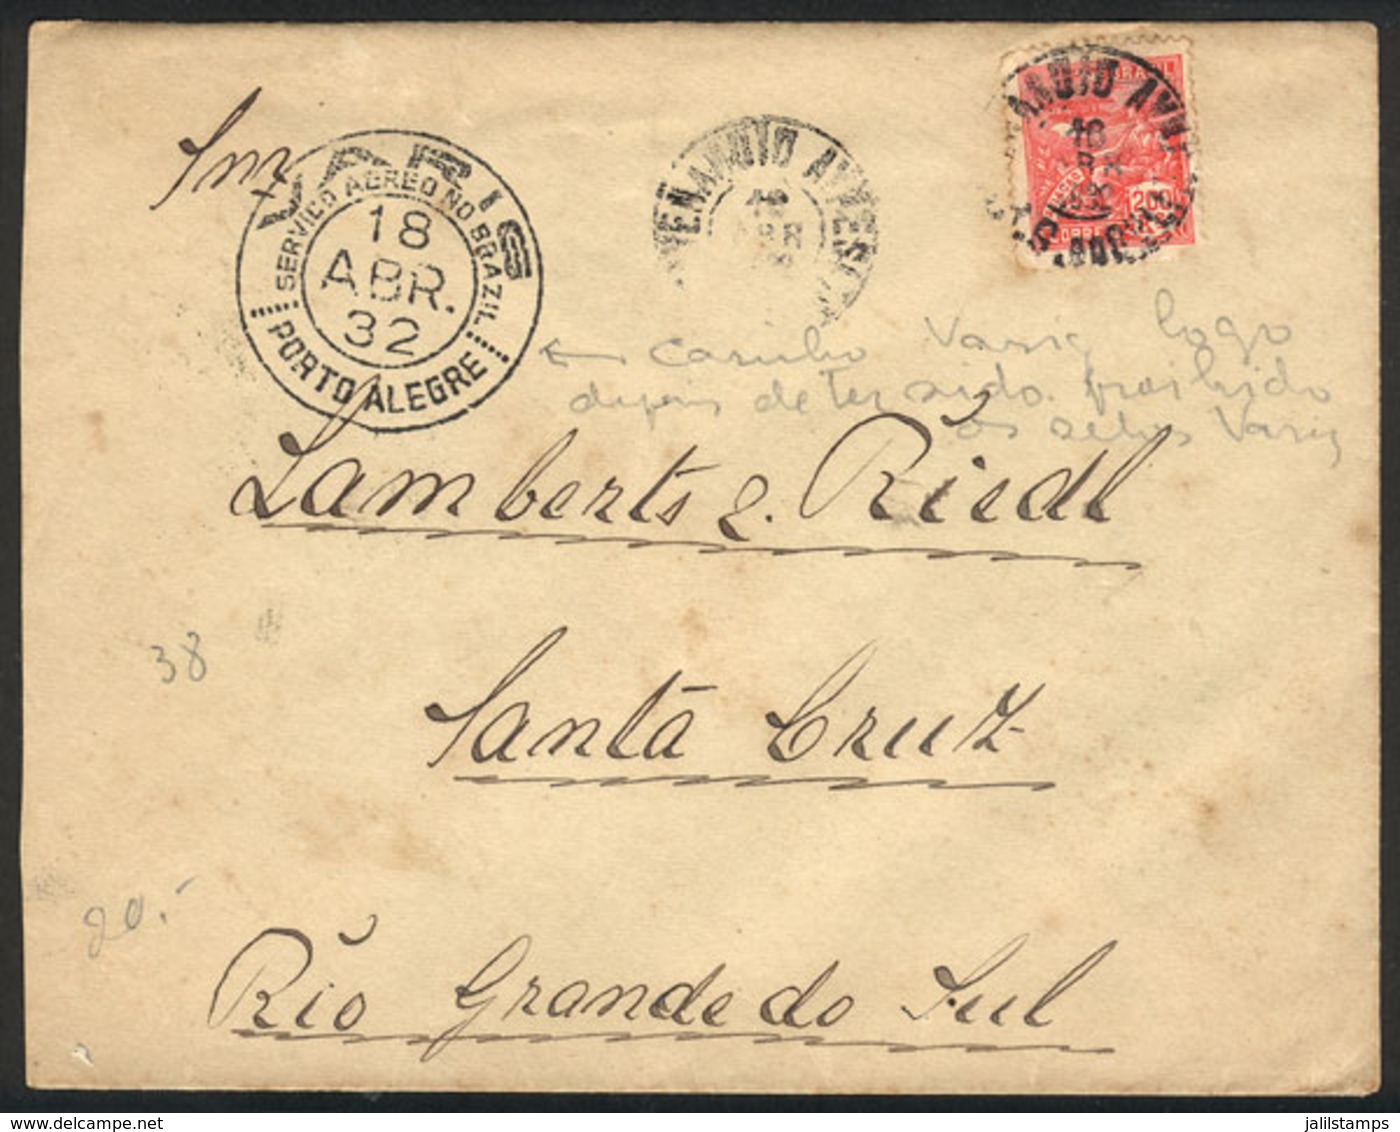 Sm
VARIG
SERVIÇO AEREO NO BRAZIL
18
ABR.
32
PORTO ALEGRE
VENANCIO AYRES
18
ABR
BRASIL
VENANCIO AYRES
18
200
CORREIO
← Carimbo Varig logo
depois de ter sido proibido
os selos Varig
Lamberts e. Riedl
38
Santa Cruz
20.-
Rio Grande do Sul
jalilstamps